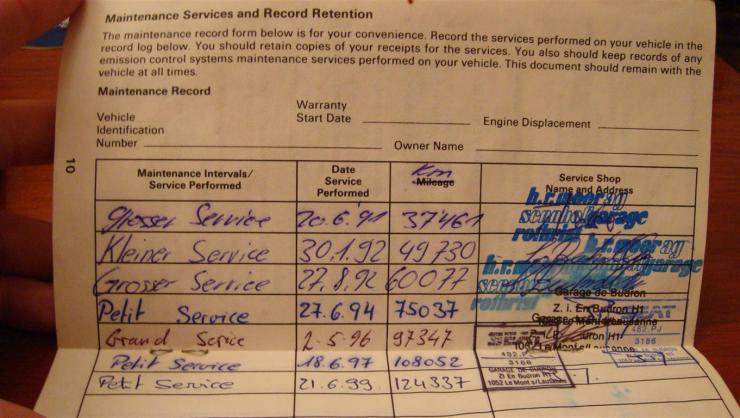 Maintenance Services and Record Retention
The maintenance record form below is for your convenience. Record the services performed on your vehicle in the
record log below. You should retain copies of your receipts for the services. You also should keep records of any
emission control systems maintenance services performed on your vehicle. This document should remain with the
vehicle at all times.
Maintenance Record
Vehicle
Identification
Number
Warranty
Start Date
Engine Displacement
Owner Name
10
Maintenance Intervals/
Service Performed
Date
Service
Performed
Km
Mileage
Service Shop
Name and Address
Grosser Service 20.6.91 37461
h.r. moor ag
garage
rothrist
Kleiner Service 30.1.92 49730
h.r. moor ag
garage
Grosser Service 27.8.92 60077
rothrist
Petit Service 27.6.94 75037
Garage de Budron
Z. i. En Budron H1
Grand Serice 2-5-96 97347
SEAT
482.PJ
3186
Petit Service 18.6.97 108052
Petit Service 21.6.99. 124337
482.P
3186
GARAGE DE BUDRON
ZI En Budron H1
1052 Le Mont s/Lausanne